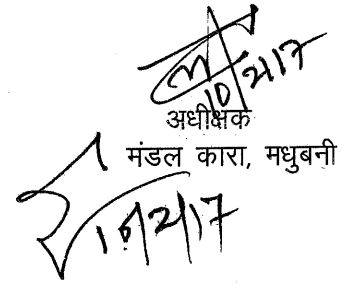 10/2/17
अधीक्षक
मंडल कारा, मधुबनी
10/2/17